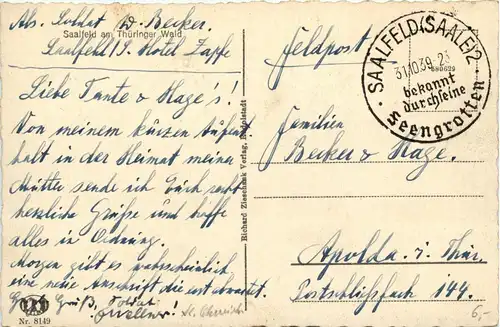 Abs. Soldat W. Becker.
Saalfeld am Thüringer Wald
Saalfeld/S. Hotel Zapfe
Liebe Tante & Hage's!
Von meinem kurzen Aufent-
halt in der Heimat meiner
Mutter sende ich Euch recht
herzliche Grüße und hoffe
alles in Ordnung.
Morgen gibt es wahrscheinlich
eine neue Anschrift die erst abwartet.
Gruß, Soldat
Nr. 8149
Richard Zieschank Verlag, Rudolstadt
Feldpost
SAALFELD (SAALE) 2
31.10.39.-23
bekannt
durch seine
Feengrotten
Familien
Becker & Hage.
Apolda i. Thür.
Postschließfach 144.
6,-